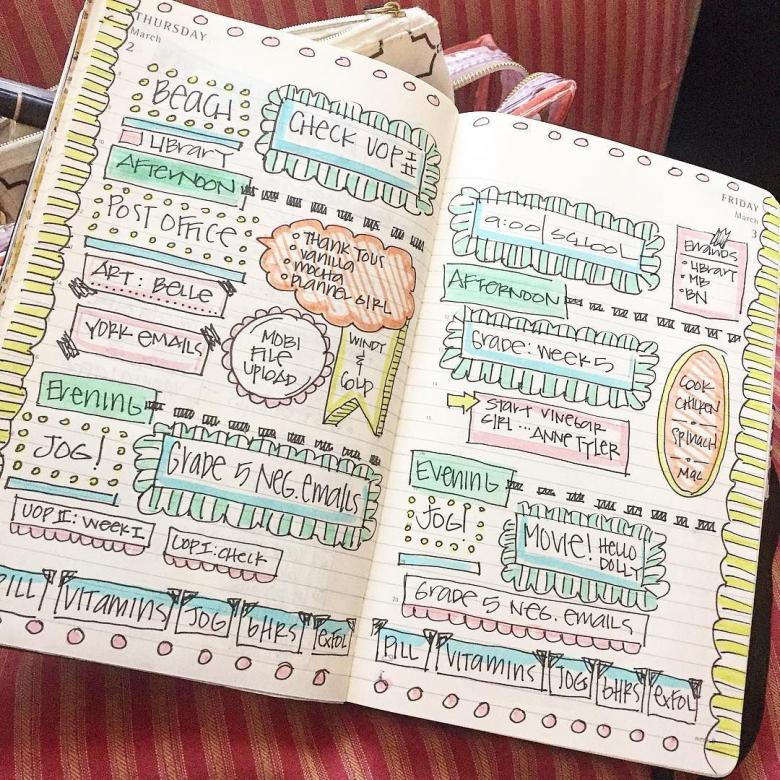 THURSDAY
March
2
BEACH
CHECK UOP I
II
LIBRARY
AFTERNOON
POST OFFICE
THANK YOUS
VANILLA
MOCHA
PLANNER GIRL
ART: BELLE
YORK EMAILS
MOBI
FILE
UPLOAD
WINDY
&
COLD
EVENING
JOG!
GRADE 5 NEG. EMAILS
UOP II: WEEK I
UOP I: CHECK
PILL
VITAMINS
JOG
6HRS
EXFOL
FRIDAY
March
3
9:00 SCHOOL
ERRANDS
LIBRARY
MB
BN
AFTERNOON
GRADE: WEEK 5
COOK
CHICKEN
SPINACH
MAC
START VINEGAR
GIRL ... ANNE TYLER
EVENING
JOG!
MOVIE! HELLO
DOLLY
GRADE 5 NEG. EMAILS
PILL
VITAMINS
JOG
6HRS
EXFOL